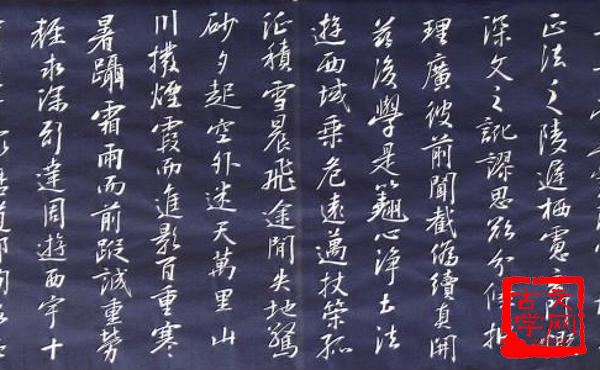 正法之陵遲栖慮玄慨
深文之訛謬思欲分條析
理廣彼前聞截偽續真開
茲後學是以翹心淨土法
遊西域乘危遠邁杖策孤
征積雪晨飛途間失地驚
砂夕起空外迷天萬里山
川撥煙霞而進影百重寒
暑躡霜雨而前蹤誠重勞
輕求深願達周遊西宇十
歷道邦詢求
古文学网